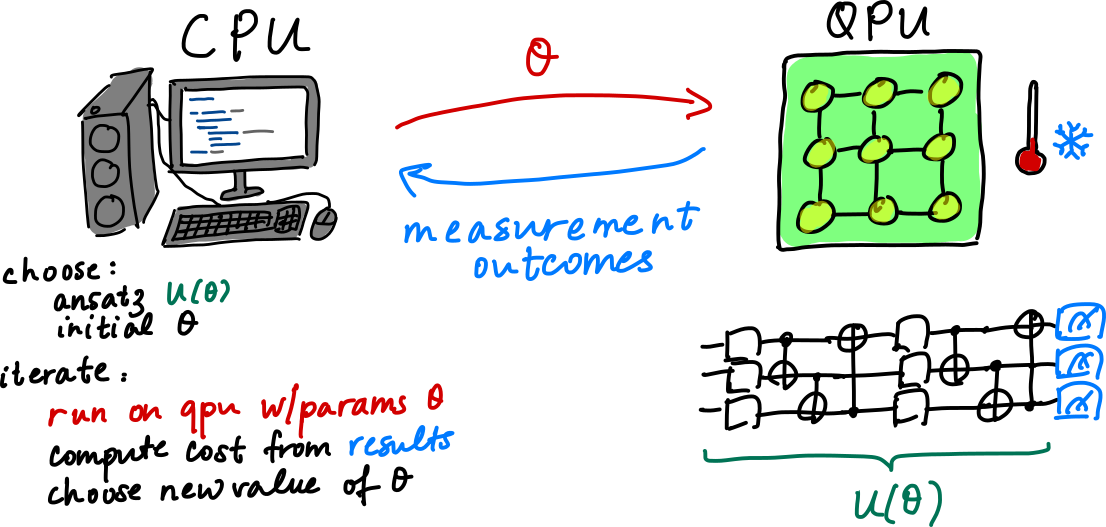 CPU
QPU
θ
measurement
outcomes
choose:
ansatz U(θ)
initial θ
iterate:
run on qpu w/params θ
compute cost from results
choose new value of θ
U(θ)